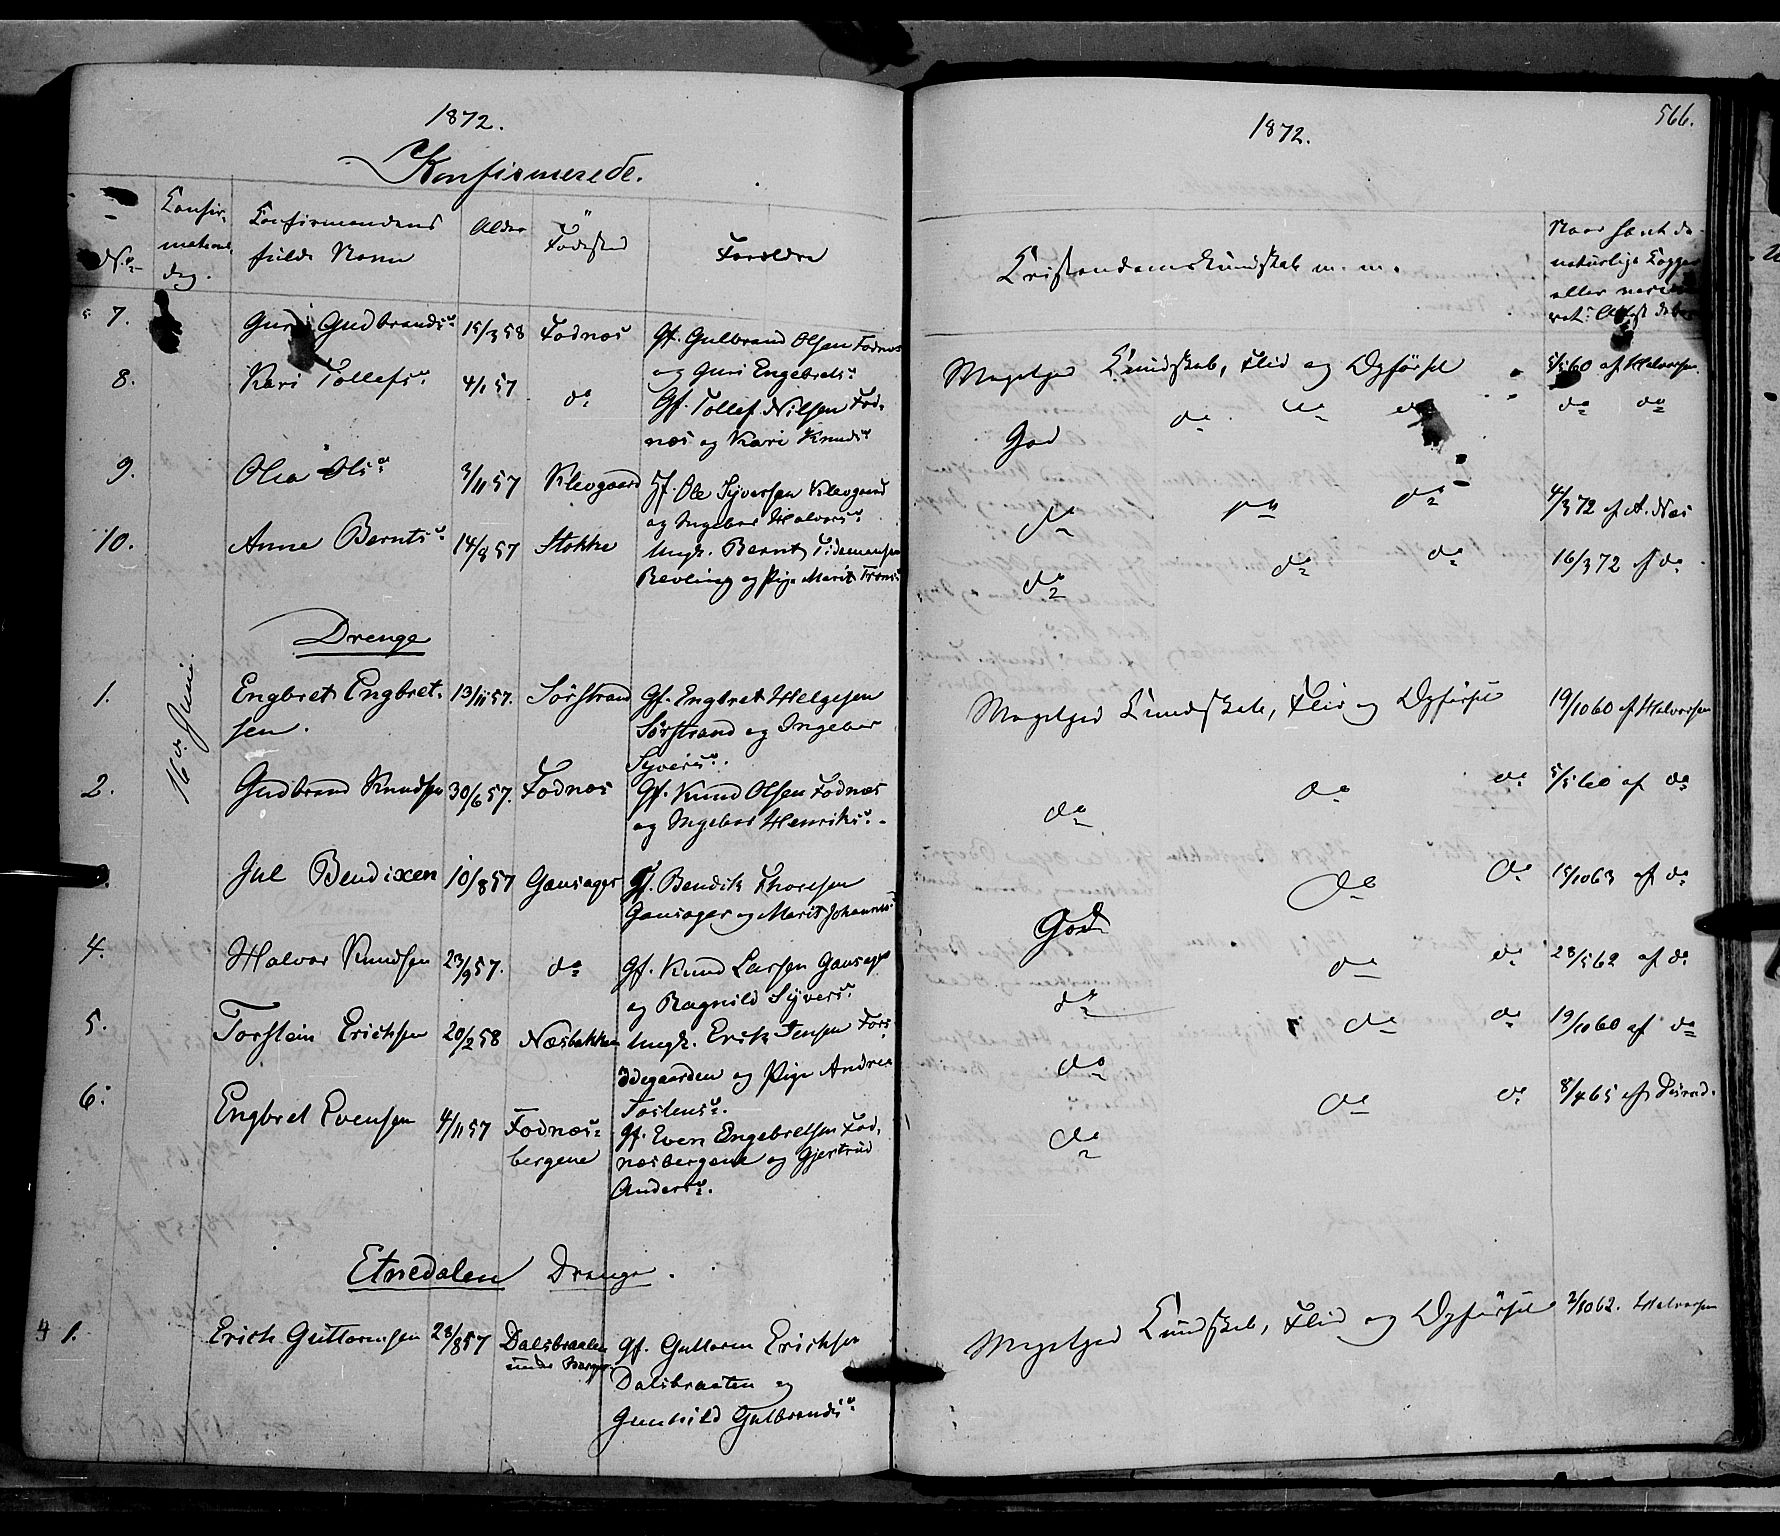 1872.
Konfirmerede.
No
Konfir-
mations
dag.
Konfirmandens
fulde Navn
Alder
Födested
Forældre
7.
Guri Gudbrandsd.
15/3 58
Fodnæs
Gf. Gulbrand Olsen Fodnæs
og Guri Engebretsd.
8.
Kari Tollefsd.
4/1 57
do
Gf. Tollef Nilsen Fod-
næs og Kari Knudsd.
9.
Olea Olsd.
3/11 57
Klevgaard
Gf. Ole Syversen Klevgaard
og Ingebor Halvorsd.
10.
Anne Berntsd.
14/8 57
Stokke
Ungk. Bernt Tidemansen
Revling og Pige Marit Fransd.
Drenge
16de Juni.
1.
Engbret Engbret-
sen.
13/11 57.
Sörstrand
Gf. Engbret Helgesen
Sörstrand og Ingebor
Syversd.
2.
Gudbrand Knudsen
30/6 57.
Fodnæs
Gf. Knud Olsen Fodnæs
og Ingebor Henriksd.
Jul Bendixen
10/8 57
Gausager
Gf. Bendik Thoresen
Gausager og Marit Johannesd.
4.
Halvor Knudsen
23/9 57.
do
Gf. Knud Larsen Gausager
og Ragnild Syversd.
5.
Torstein Ericksen
20/2 58
Næsbakken
Ungk. Erick Jensen Fors-
ödegaarden og Pige Andrea
Tostensd.
6.
Engbret Evensen
4/11 57
Fodnæs-
bergene
Gf. Even Engebretsen Fod-
næsbergene og Gjertrud
Andersd.
Etnedalen Drenge.
4 1.
Erick Guttormsen
28/8 57
Dalsbraaten
under Berger
Gf. Guttorm Ericksen
Dalsbraaten og
Gunhild Gulbrandsd.
566.
1872.
Kristendomskundskab m. m.
Naar havt de
naturlige Kopper
eller været vacci-
neret: Attest
Megetgod Kundskab, Flid og Opförsel
5/5 60 af Halvorsen.
God do do do
do do
do do do
4/3 72 af A. Næs
do do do
16/3 72 af do
Megetgod Kundskab, Flid og Opförsel
19/10 60 af Halvorsen
do do do
5/5 60 af do
God do do
15/10 63 af do
do do do
28/5 62 af do
do do do
19/10 60 af do
do do do
8/4 65 af
Megetgod Kundskab, Flid og Opförsel
2/10 62. Halvorsen